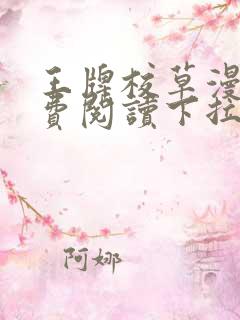 王牌校草漫
費閱讀下拉
阿娜